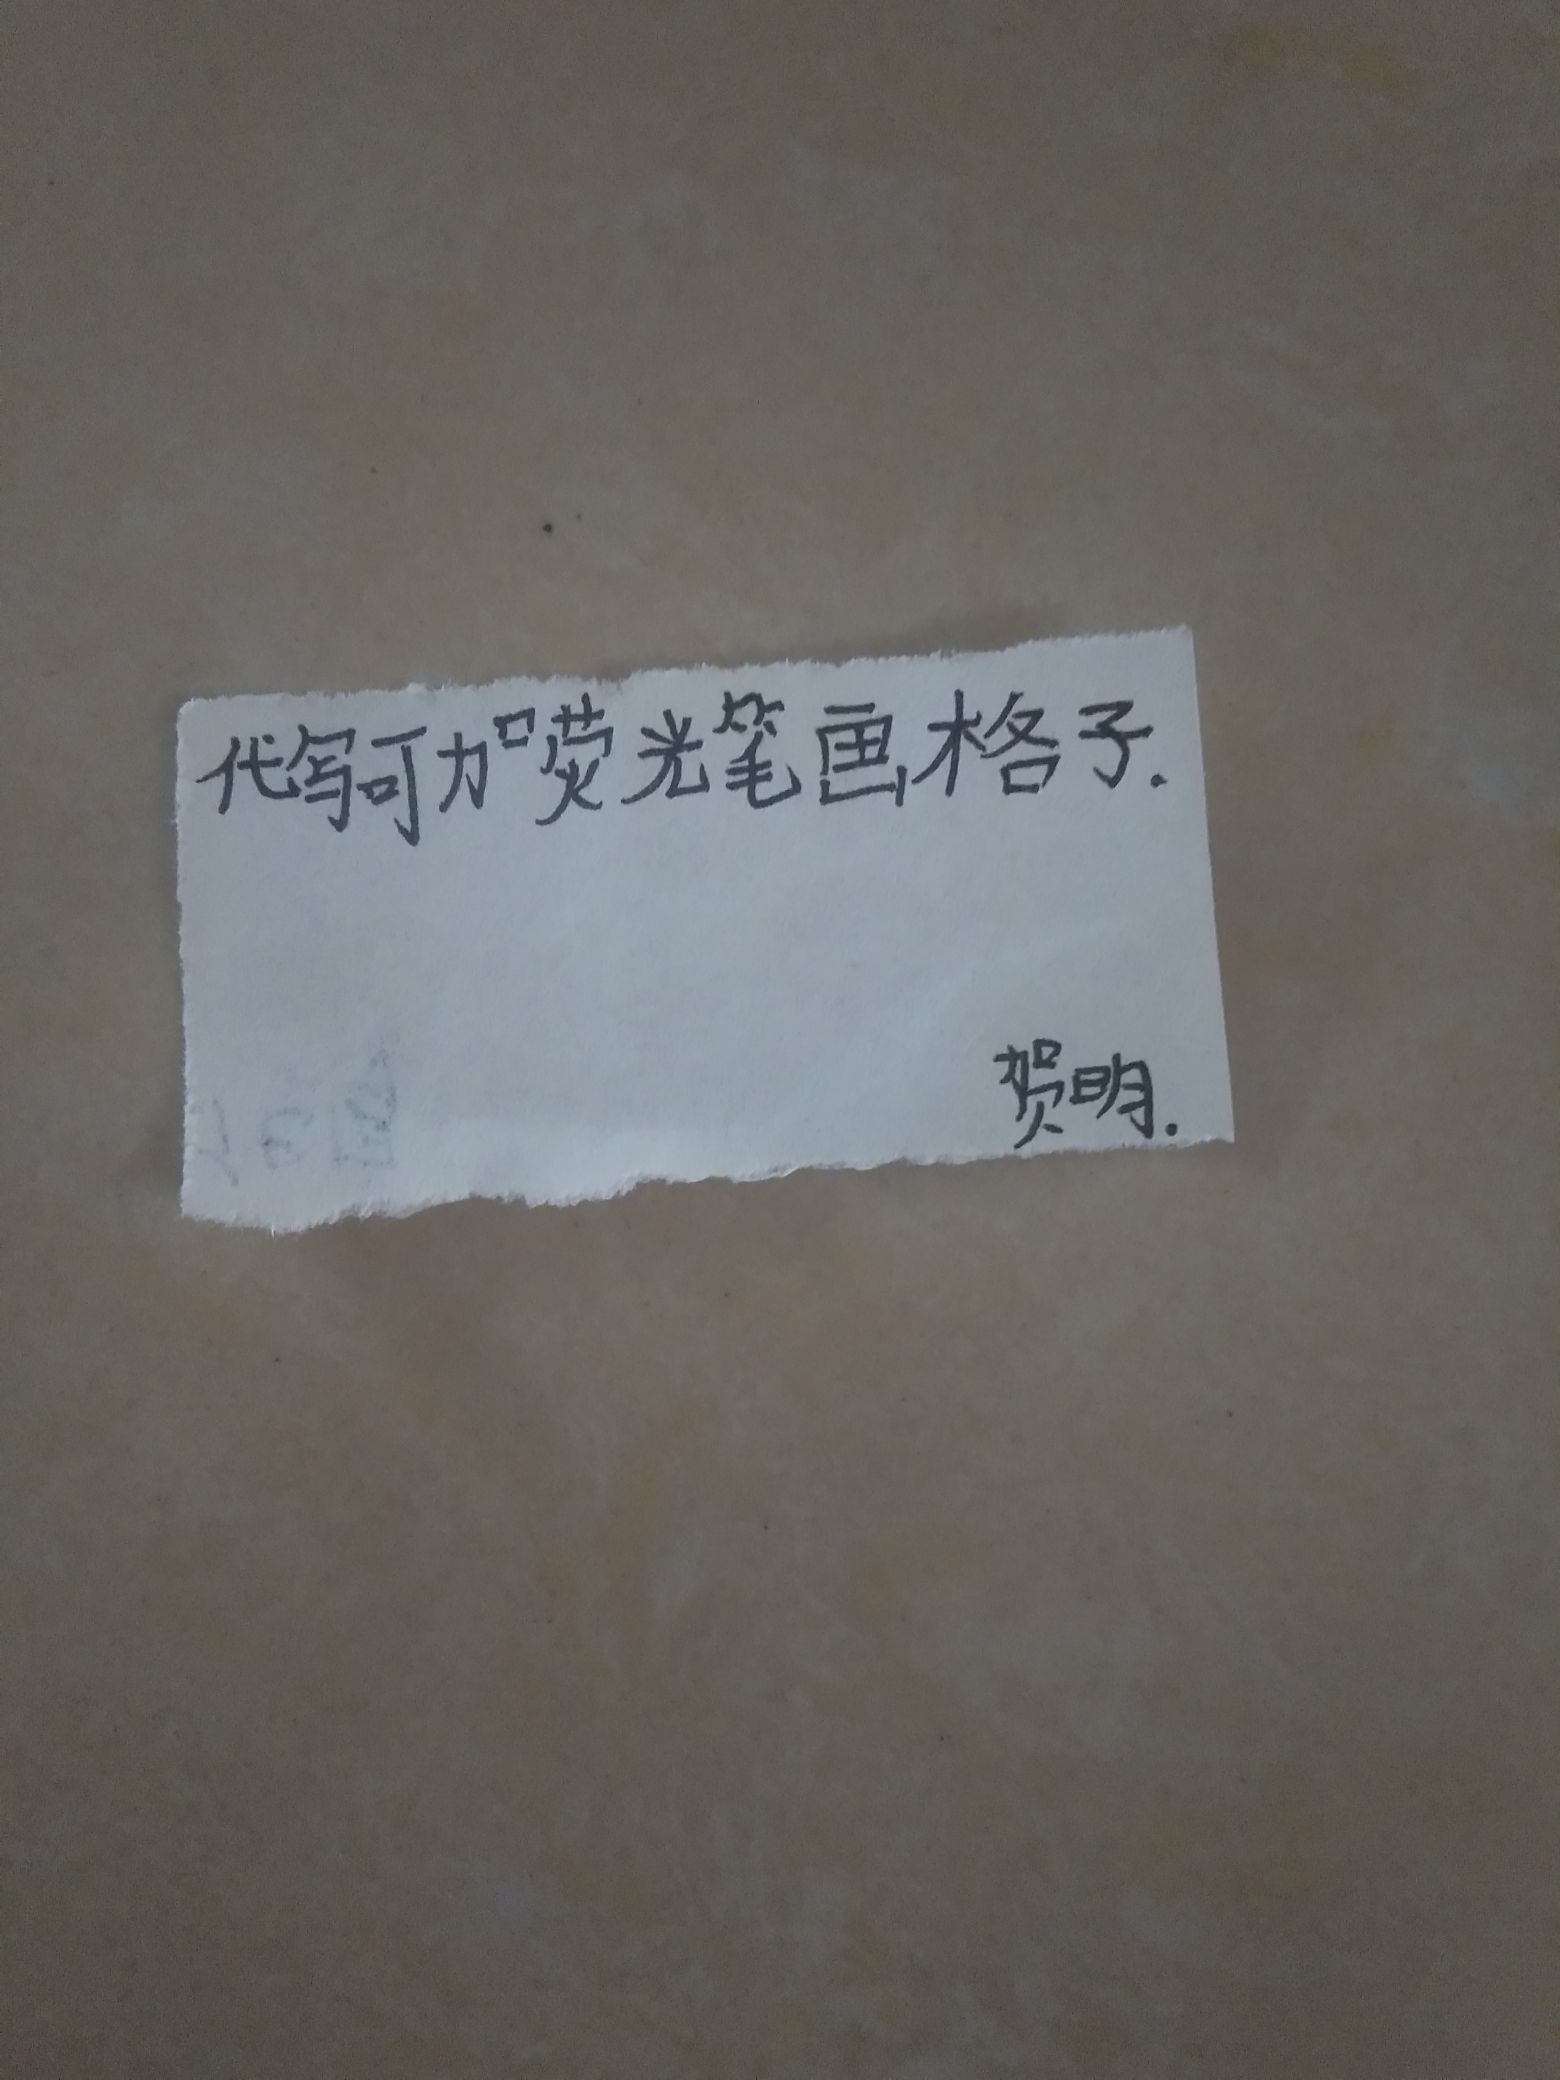 代写可加荧光笔画格子.
贺明.